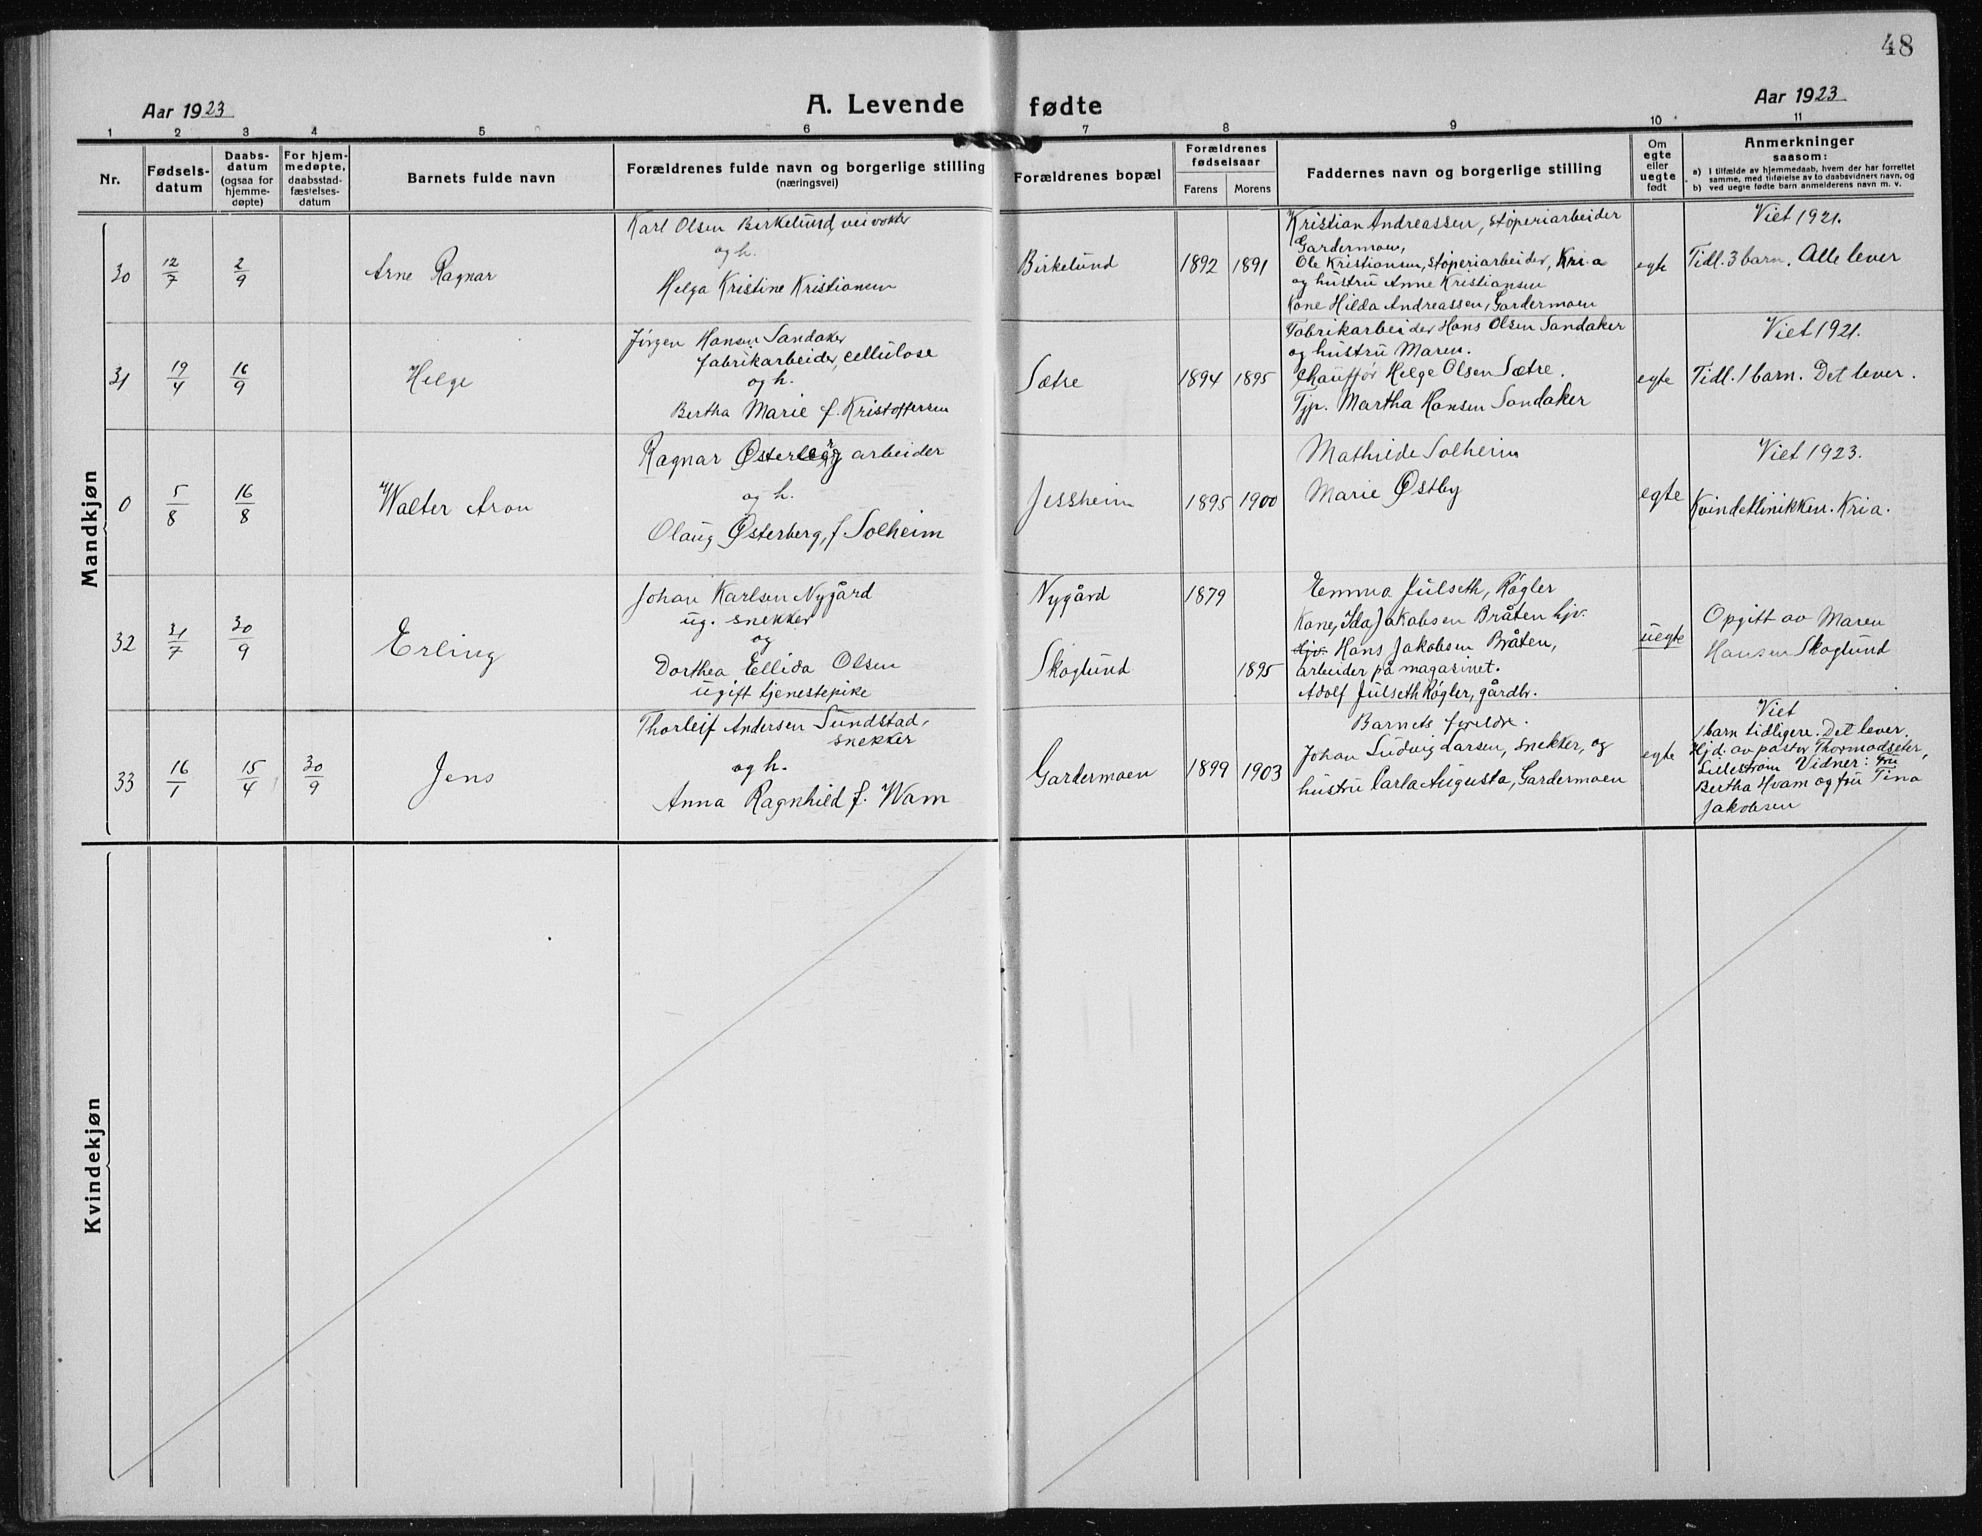 48
Aar 1923
A. Levende fødte
Aar 1923
1 2 3 4 5 6 7 8 9 10 11
Nr.
Fødsels-
datum
Daabs-
datum
(ogsaa for
hjemme-
døpte)
For hjem-
medøpte,
daabsstad-
fæstelses-
datum
Barnets fulde navn
Forældrenes fulde navn og borgerlige stilling
(næringsvei)
Forældrenes bopæl
Forældrenes
fødselsaar
Farens Morens
Faddernes navn og borgerlige stilling
Om
egte
eller
uegte
født
Anmerkninger
saasom:
a) I tilfælde av hjemmedaab, hvem der har forrettet
samme, med tilføielse av to daabsvidners navn, og
b) ved uegte fødte barn anmelderens navn m. v.
Mandkjøn
30
12/7
2/9
Arne Ragnar
Karl Olsen Birkelund, veivokter
og h.
Helga Kristine Kristiansen
Birkelund
1892 1891
Kristian Andreassen, støperiarbeider
Gardermoen,
Ole Kristiansen, støperiarbeider, Kri.a
og hustru Anne Kristiansen
Kone Hilda Andreassen, Gardermoen
egte
Viet 1921.
Tidl. 3 barn. Alle lever
31
19/4
16/9
Helge
Jørgen Hansen Sandaker
fabrikarbeider, cellulose
og h.
Bertha Marie f. Kristoffersen
Sætre
1894 1895
Fabrikarbeider Hans Olsen Sandaker
og hustru Maren.
Chauffør Helge Olsen Sætre.
Tjp. Martha Hansen Sandaker
egte
Viet 1921.
Tidl. 1 barn. Det lever.
0
5/8
16/8
Walter Aron
Ragnar arbeider
og h.
Olaug Østerberg, f Solheim
Jessheim
1895 1900
Mathilde Solheim
Marie Østby
egte
Viet 1923.
Kvindeklinikken. Kria.
32
31/7
30/9
Erling
Johan Karlsen Nygård
ug. snekker
og
Dorthea Ellida Olsen
ugift tjenestepike
Nygård
Skoglund
1879
1895
Emma Julseth, Røgler
Kone, Ida Jakobsen Bråten hjv.
hjv. Hans Jakobsen Bråten,
arbeider på magasinet.
Adolf Julseth Røgler, gårdbr.
uegte
Opgitt av Maren
Hansen Skoglund
33
16/1
15/4
30/9
Jens
Thorleif Andersen Sundstad,
snekker
og h.
Anna Ragnhild f. Wam
Gardermoen
1899 1903
Barnets foreldre.
Johan Ludvig Larsen, snekker, og
hustru Carla Augusta, Gardermoen
egte
Viet
1 barn tidligere. Det lever.
Hjd. av pastor Thormodsæter,
Lillestrøm Vidner: fru
Bertha Hvam og fru Tina
Jakobsen
Kvindekjøn